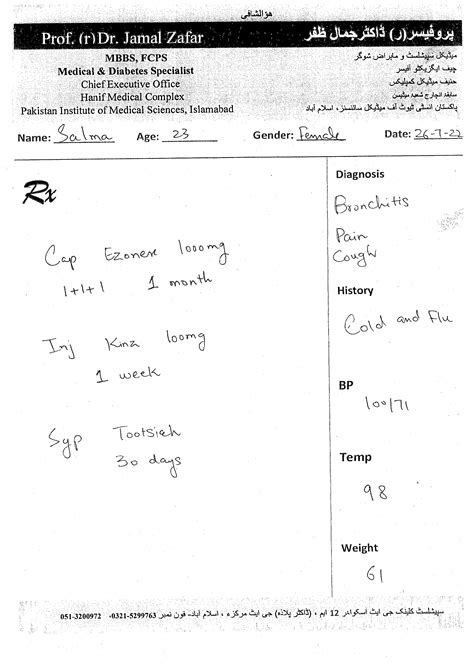 هوالشافی
Prof. (r) Dr. Jamal Zafar
پروفیسر(ر) ڈاکٹر جمال ظفر
MBBS, FCPS
Medical & Diabetes Specialist
Chief Executive Office
Hanif Medical Complex
Pakistan Institute of Medical Sciences, Islamabad
میڈیکل سپیشلسٹ و ماہر امراض شوگر
چیف ایگزیکٹو آفیسر
حنیف میڈیکل کمپلیکس
سابقہ انچارج شعبہ میڈیسن
پاکستان انسٹی ٹیوٹ آف میڈیکل سائنسز، اسلام آباد
Name: Salma Age: 23 Gender: Female Date: 26-7-22
Rx
Cap Ezonex 1000mg
1+1+1 1 month
Inj Kinz 100mg
1 week
Syp Tootsieh
30 days
Diagnosis
Bronchitis
Pain
Cough
History
Cold and Flu
BP
100/71
Temp
98
Weight
61
سپیشلسٹ کلینک جی ایٹ اسکوائر 12 ایم ، (ڈاکٹر پلازہ) جی ایٹ مرکز ، اسلام آباد۔ فون نمبر 0321-5299763، 051-3200972